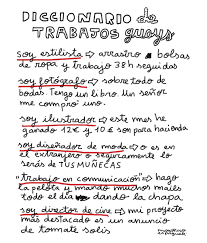 DICCIONARIO de
TRABAJOS guays
soy estilista ⇨ arrastro bolsas
de ropa y trabajo 38h seguidas
soy fotógrafo ⇨ sobre todo de
bodas. Tengo un libro. Un señor
me compró uno.
soy ilustrador ⇨ este mes he
ganado 12€ y 10€ son para hacienda
soy diseñador de moda ⇨ o es en
el extranjero o seguramente lo
serás de TUS MUÑECAS
trabajo en comunicación ⇨ hago
la pelota y mando muchos mails
todo el día dando la chapa
soy director de cine ⇨ mi proyecto
más destacado es un anuncio
de tomate solis